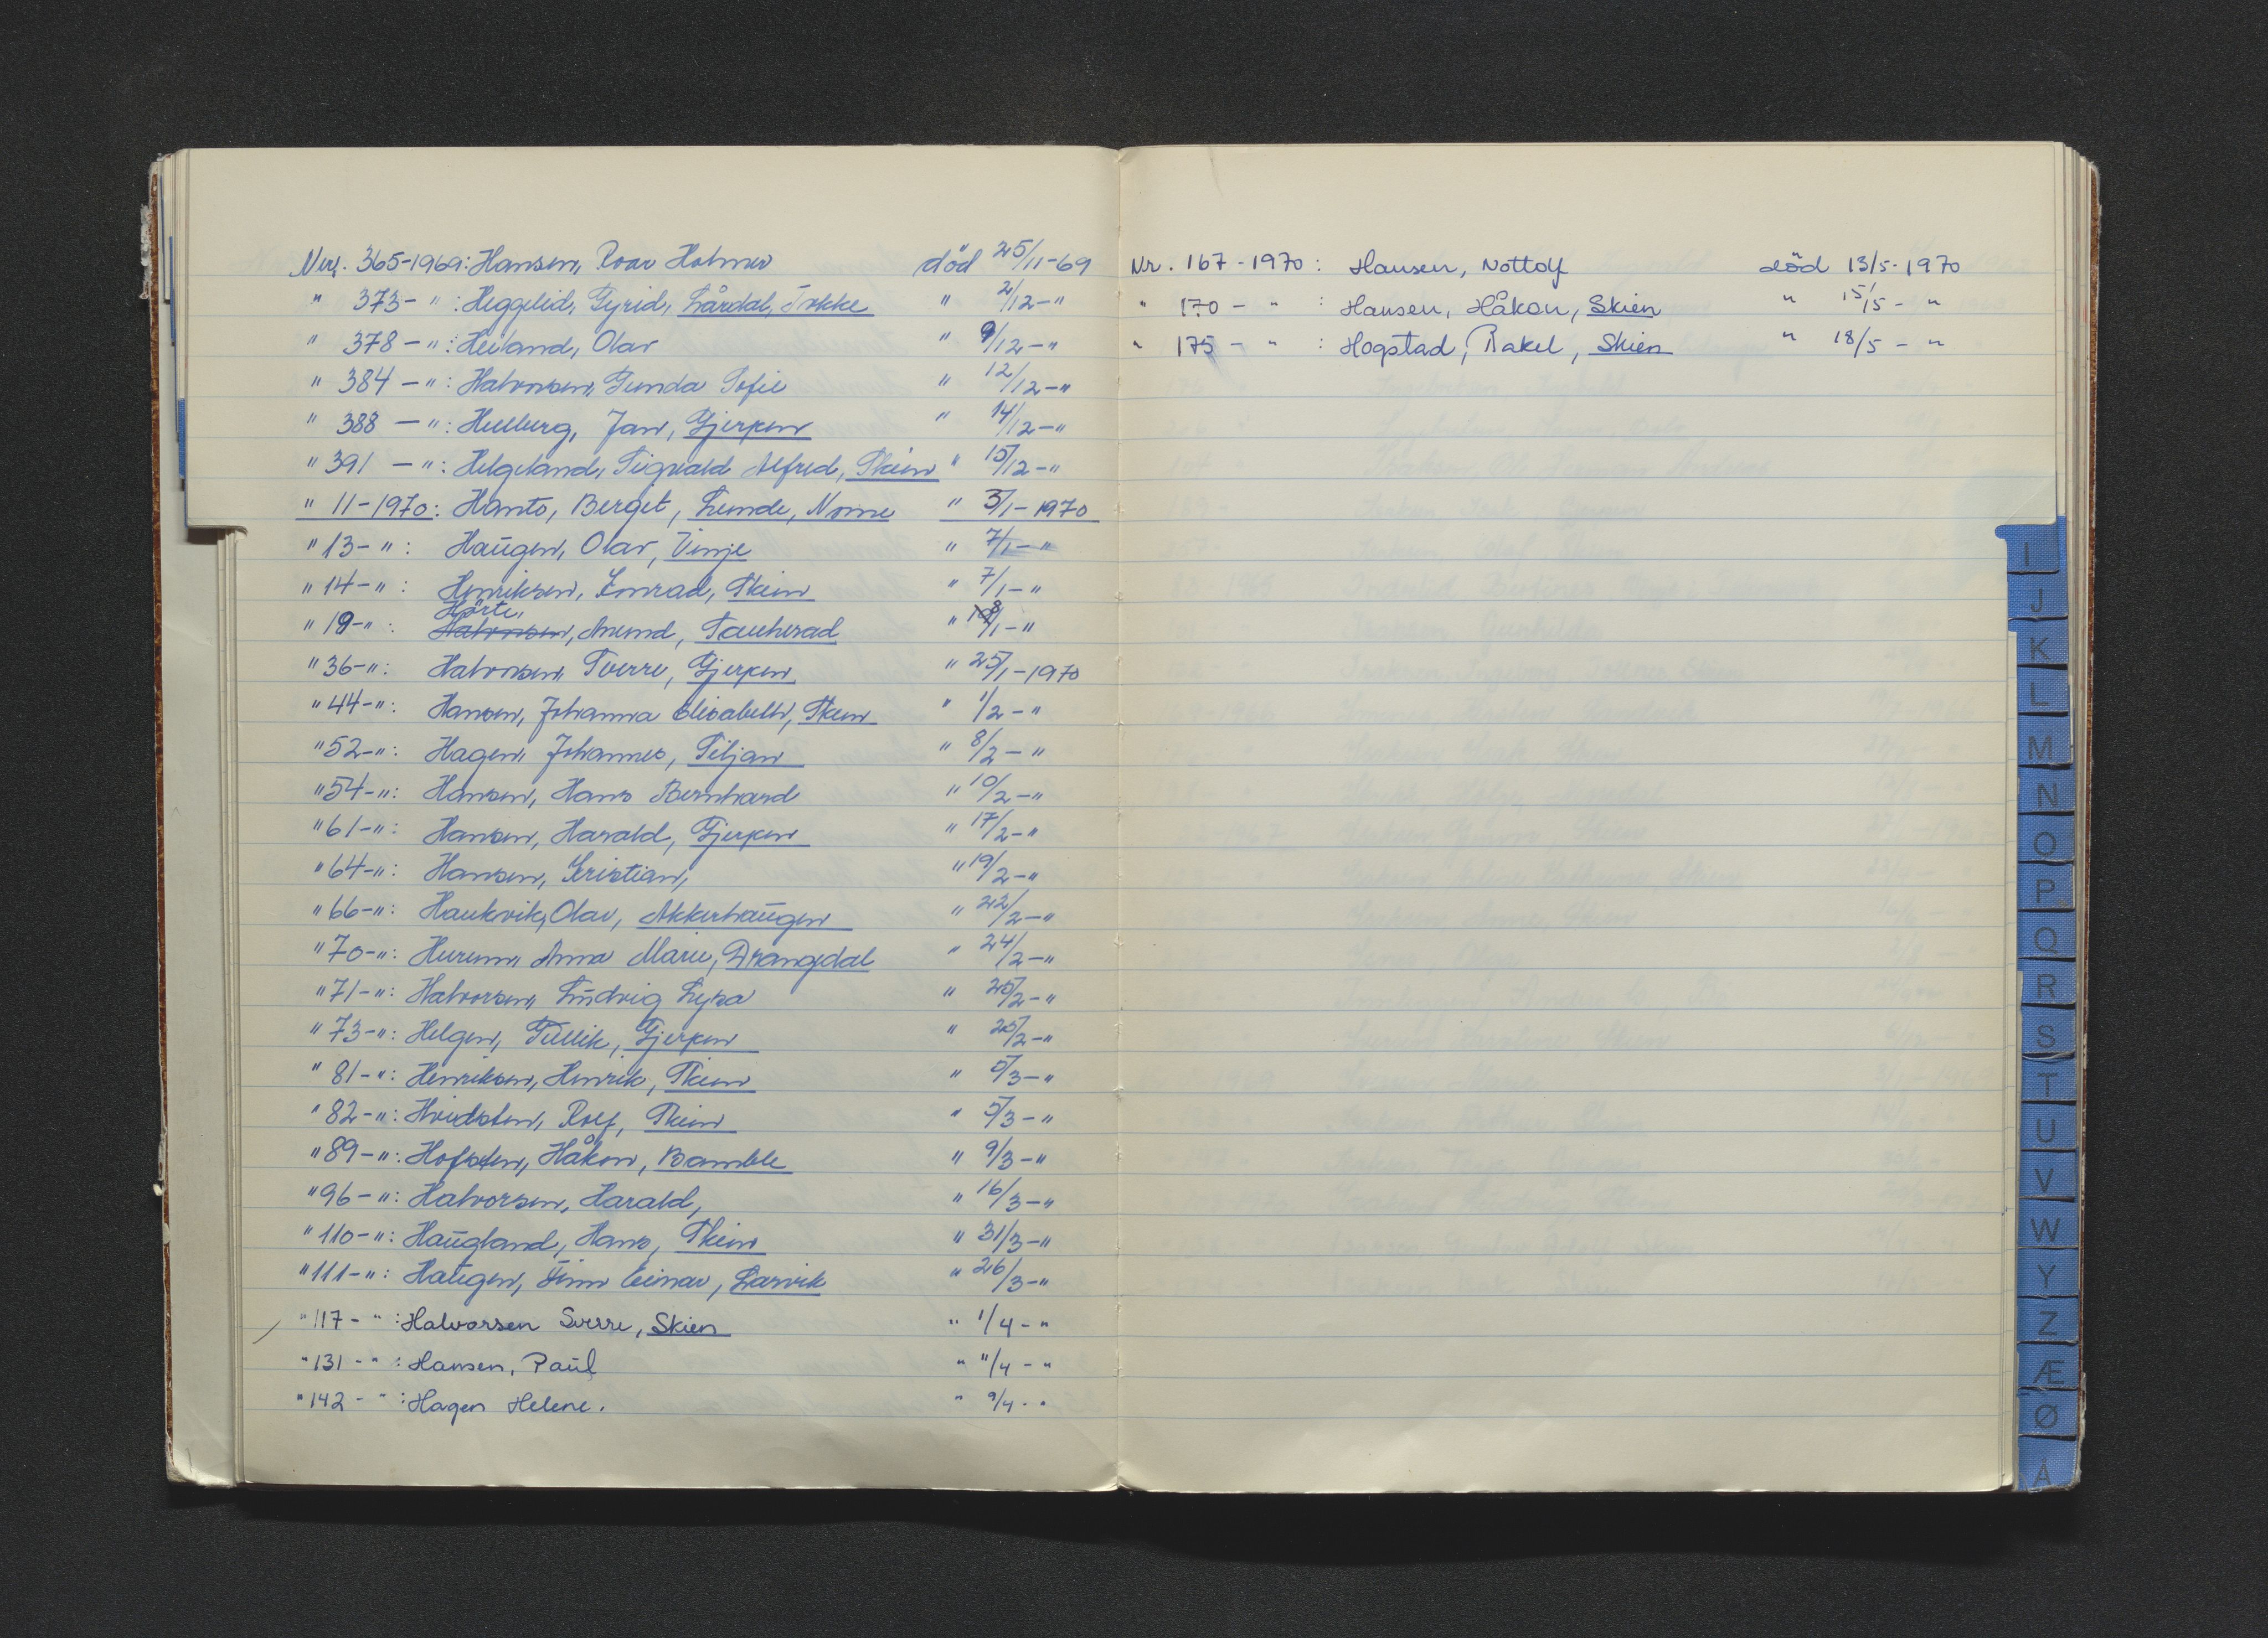 Nr. 365-1969: Hansen, Roar Holmer død 25/11-69
" 373- " : Heggeleid, Gyrid, Lårdal, Tokke " 2/12-"
" 378 - " : Heiland, Olav " 9/12-"
" 384 - " : Halvorsen, Gunda Sofie " 12/12-"
" 388 - " : Hellberg, Jan, Gjerpen " 14/12-"
" 391 - " : Helgeland, Sigvald Alfred, Skien " 15/12-"
" 11-1970: Hanto, Berget, Lunde, Nome " 3/1-1970
" 13- " : Haugen, Olav, Vinje " 7/1-"
" 14- " : Henriksen, Konrad, Skien " 7/1-"
" 19- " : Halvorsen Hørte, Anund, Sauherad " 8/1-"
" 36- " : Halvorsen, Sverre, Gjerpen " 25/1-1970
" 44- " : Hansen, Johanna Elisabeth, Skien " 1/2-"
" 52- " : Hagen, Johannes, Siljan " 8/2-"
" 54- " : Hansen, Hans Bernhard " 10/2-"
" 61- " : Hansen, Harald, Gjerpen " 17/2-"
" 64- " : Hansen, Kristian, " 19/2-"
" 66- " : Haukvik, Olav, Akkerhaugen " 22/2-"
" 70- " : Hurum, Anna Marie, Drangedal " 24/2-"
" 71- " : Halvorsen, Ludvig Lysa " 25/2-"
" 73- " : Helgen, Tellik, Gjerpen " 25/2-"
" 81- " : Henriksen, Henrik, Skien " 5/3-"
" 82- " : Hvidsten, Rolf, Skien " 5/3-"
" 89- " : Hofsten, Håkon, Bamble " 9/3-"
" 96- " : Halvorsen, Harald, " 16/3-"
" 110- " : Haugland, Hans, Skien " 31/3-"
" 111- " : Haugen, Finn Einar, Larvik " 26/3-"
" 117- " : Halvorsen Sverre, Skien " 1/4-"
" 131- " : Hansen, Paul " "/4-"
" 142- " : Hagen Helene. " 9/4-"
Nr. 167-1970 : Hansen, Nottolf død 13/5-1970
" 170 - " : Hansen, Håkon, Skien " 15/5-"
" 175 - " : Hogstad, Rakel, Skien " 18/5-"
I
J
K
L
M
N
O
P
Q
R
S
T
U
V
W
Y
Z
Æ
Ø
Å